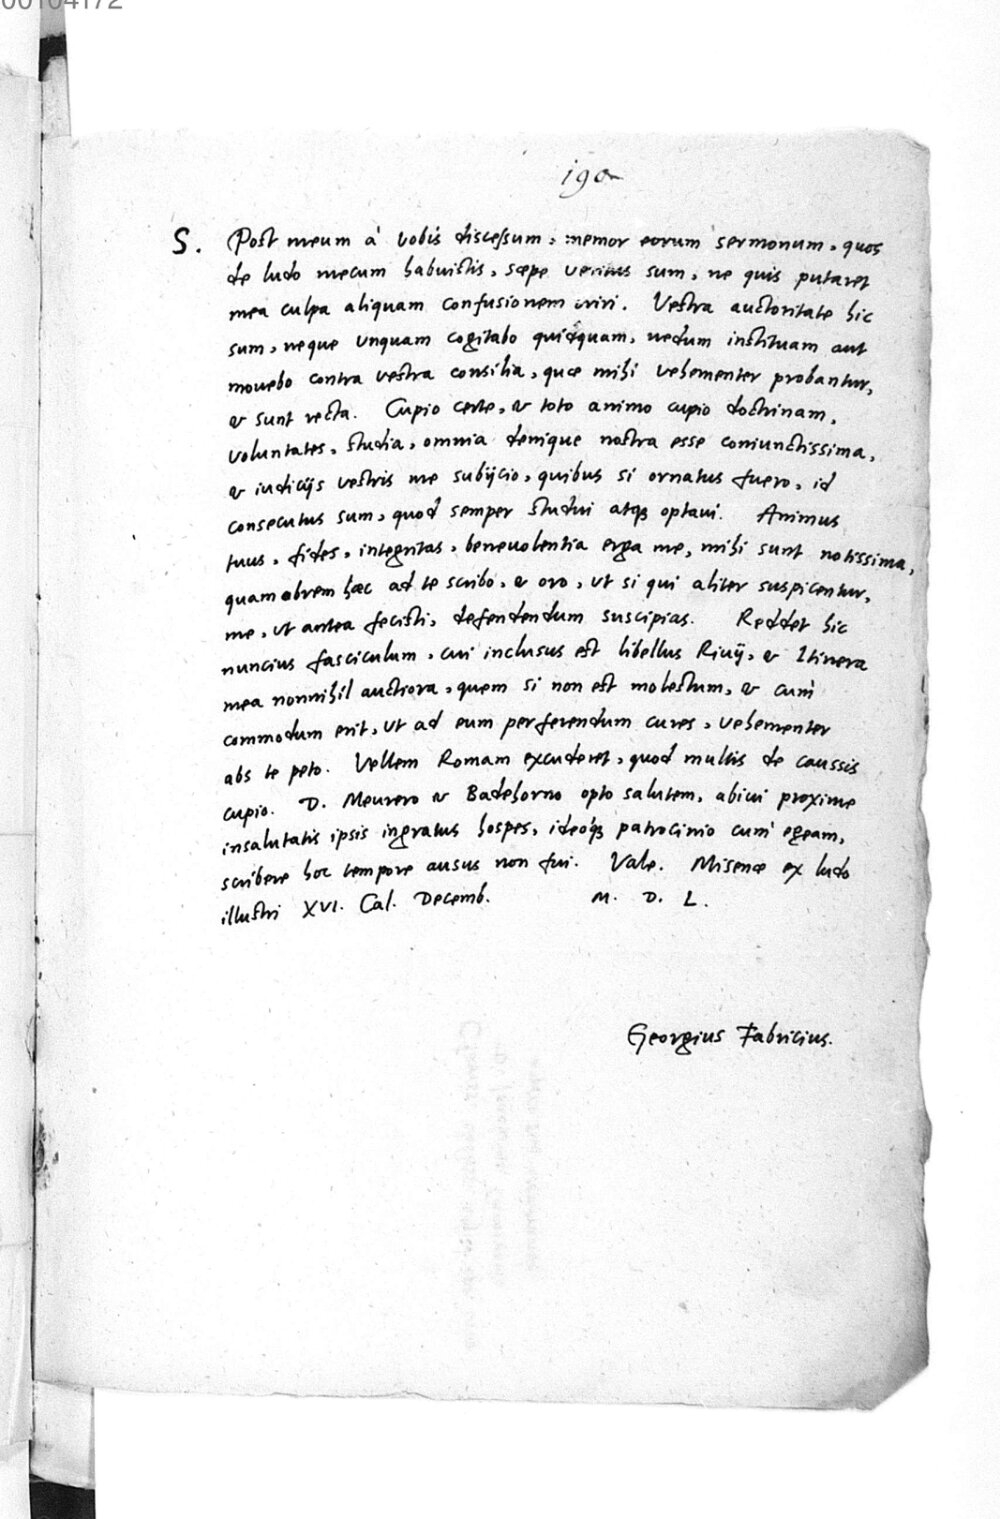 190
S. Post meum à vobis discessum, memor eorum sermonum, quos
de ludo mecum habuistis, sæpe veritus sum, ne quis putaret
mea culpa aliquam confusionem oriri. Vestra auctoritate hic
sum, neque unquam cogitabo quidquam, nedum instituam aut
mouebo contra vestra consilia, quæ mihi vehementer probantur,
& sunt recta. Cupio certe, & toto animo cupio doctrinam,
voluntates, studia, omnia denique nostra esse coniunctissima,
& iudicijs vestris me subijcio, quibus si ornatus fuero, id
consecutus sum, quod semper studui atq; optaui. Animus
tuus, fides, integritas, beneuolentia erga me, mihi sunt notissima,
quamobrem hæc ad te scribo, & oro, ut si qui aliter suspicentur,
me, ut antea fecisti, defendendum suscipias. Reddet hic
nuncius fasciculum, cui inclusus est libellus Riuij, & Itinera
mea nonnihil auctiora, quem si non est molestum, & cum
commodum erit, ut ad eum perferendum cures, vehementer
abs te peto. Vellem Romam excuderet, quod multis de caussis
cupio. D. Meurero & Badehorno opto salutem, abiui proxime
insalutatis ipsis ingratus hospes, ideoq; patrocinio cum egeam,
scribere hoc tempore ausus non fui. Vale. Misenæ ex ludo
illustri XVI. Cal. Decemb. M. D. L.
Georgius Fabricius.